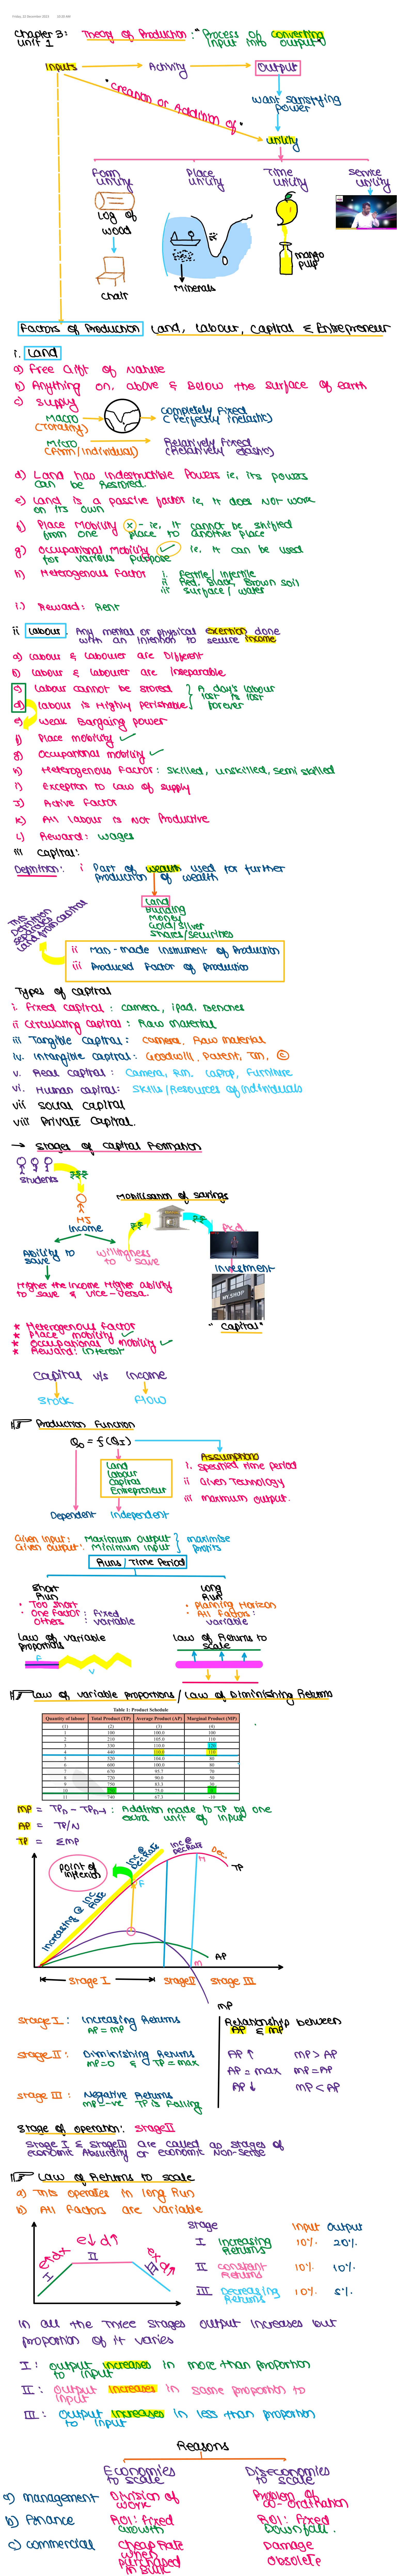 Friday, 22 December 2023 10:20 AM
Chapter 3: Theory of Production: "Process of converting
unit 1 input into output"
Inputs Activity Output
"Creation or Addition of"
Want satisfying
power
utility
Form Place Time Service
utility utility utility utility
Log of
wood
chair
Minerals
mango
pulp
Factors of Production Land, Labour, Capital & Entrepreneur
i. Land
a) Free Gift of Nature
b) Anything on, above & Below the surface of earth
c) Supply
Macro completely fixed
(Totality) (Perfectly inelastic)
Micro Relatively Fixed
(Firm/individual) (Relatively elastic)
d) Land has indestructible Powers ie, its powers
can be Restored.
e) Land is a passive factor ie, It does Not work
on its own
f) Place Mobility x - ie, It cannot be shifted
from one place to another place
g) Occupational Mobility ✓ ie. It can be used
for various purpose
h) Heterogenous Factor i Fertile / Infertile
ii Red, Black, Brown soil
iii surface / water
i.) Reward: Rent
ii Labour. Any mental or physical exertion done
with an intention to secure income
a) Labour & Labourer are Different
b) Labour & labourer are inseparable
c) Labour cannot be stored } A day's labour
d) Labour is Highly perishable } lost is lost
forever
e) weak Bargaing power
f) Place mobility ✓
g) Occupational mobility ✓
h) Heterogenous Factor: skilled, unskilled, semi skilled
i) Exception to Law of supply
J) Active Factor
k) All labour is Not Productive
L) Reward: wages
iii Capital:
Definition: i Part of wealth used for further
production of wealth
Land
Building
Money
Gold/silver
Shares/securities
This
Definition
seperates
Land from capital
ii Man-made Instrument of Production
iii Produced Factor of production
Types of capital
i. Fixed capital: camera, ipad, Benches
ii Circulating capital: Raw material
iii Tangible capital: camera, Raw material
iv. Intangible capital: Goodwill, Patent, Tm, ©
v. Real capital: Camera, Rm, Laptop, Furniture
vi. Human capital: Skills/Resources of individuals
vii Social Capital
viii Private Capital.
→ Stages of capital Formation
Students
MJ
Income
Mobilisation of savings
Ability to Willingness
save to save
Investment
MY SHOP
Higher the income Higher ability
to save & vice-versa.
"Capital"
* Heterogenous factor
* Place mobility ✓
* Occupational mobility ✓
* Reward: interest
Capital v/s Income
Stock Flow
Production Function
Qo = f(QI)
Land
Labour
Capital
Entrepreneur
Assumptions
i. Specified time period
ii Given Technology
iii maximum output.
Dependent Independent
Given input: Maximum output } maximise
Given output: Minimum input } profits
Runs / Time Period
Short Long
Run Run
• Too short • Planning Horizon
• One factor: fixed • All Factors:
Others : variable variable
Law of variable Law of Returns to
proportions scale
F
V
Law of variable proportions / Law of Diminishing Returns
Table 1: Product Schedule
Quantity of labour Total Product (TP) Average Product (AP) Marginal Product (MP)
(1) (2) (3) (4)
1 100 100.0 100
2 210 105.0 110
3 330 110.0 120
4 440 110.0 110
5 520 104.0 80
6 600 100.0 80
7 670 95.7 70
8 720 90.0 50
9 750 83.3 30
10 750 75.0 0
11 740 67.3 -10
MP = TPn - TPn-1 : Addition made to TP by one
extra unit of input
AP = TP/N
TP = ΣMP
Point of
inflexion
Increasing @ Inc
Rate
Inc @
Dec Rate
Inc @
Dec Rate
Dec.
TP
F
M
AP
M
Stage I Stage II Stage III
MP
Stage I: Increasing Returns
AP = MP
Stage II: Diminishing Returns
MP=0 & TP = max
Stage III: Negative Returns
MP=-ve TP is Falling
Relationship between
AP & MP
AP ↑ MP > AP
AP = max MP = AP
AP ↓ MP < AP
Stage of operation: Stage II
Stage I & Stage III are called as stages of
economic Absurdity or economic Non-sense
Law of Returns to scale
a) This operates in long Run
b) All factors are variable
Stage Input Output
I Increasing 10% 20%
Returns
II constant 10% 10%
Returns
III Decreasing 10% 5%
Returns
I
II
III
In all the three stages output increases but
proportion of it varies
I: Output increases in more than proportion
to input
II: Output increases in same proportion to
input
III: Output increases in less than proportion
to input
Reasons
Economies Diseconomies
to scale to scale
a) management Division of Problem of
work co-ordination
b) Finance ROI: Fixed ROI: Fixed
Growth Downfall.
c) commercial Cheap Rate Damage
when Obsolete
purchased
in bulk